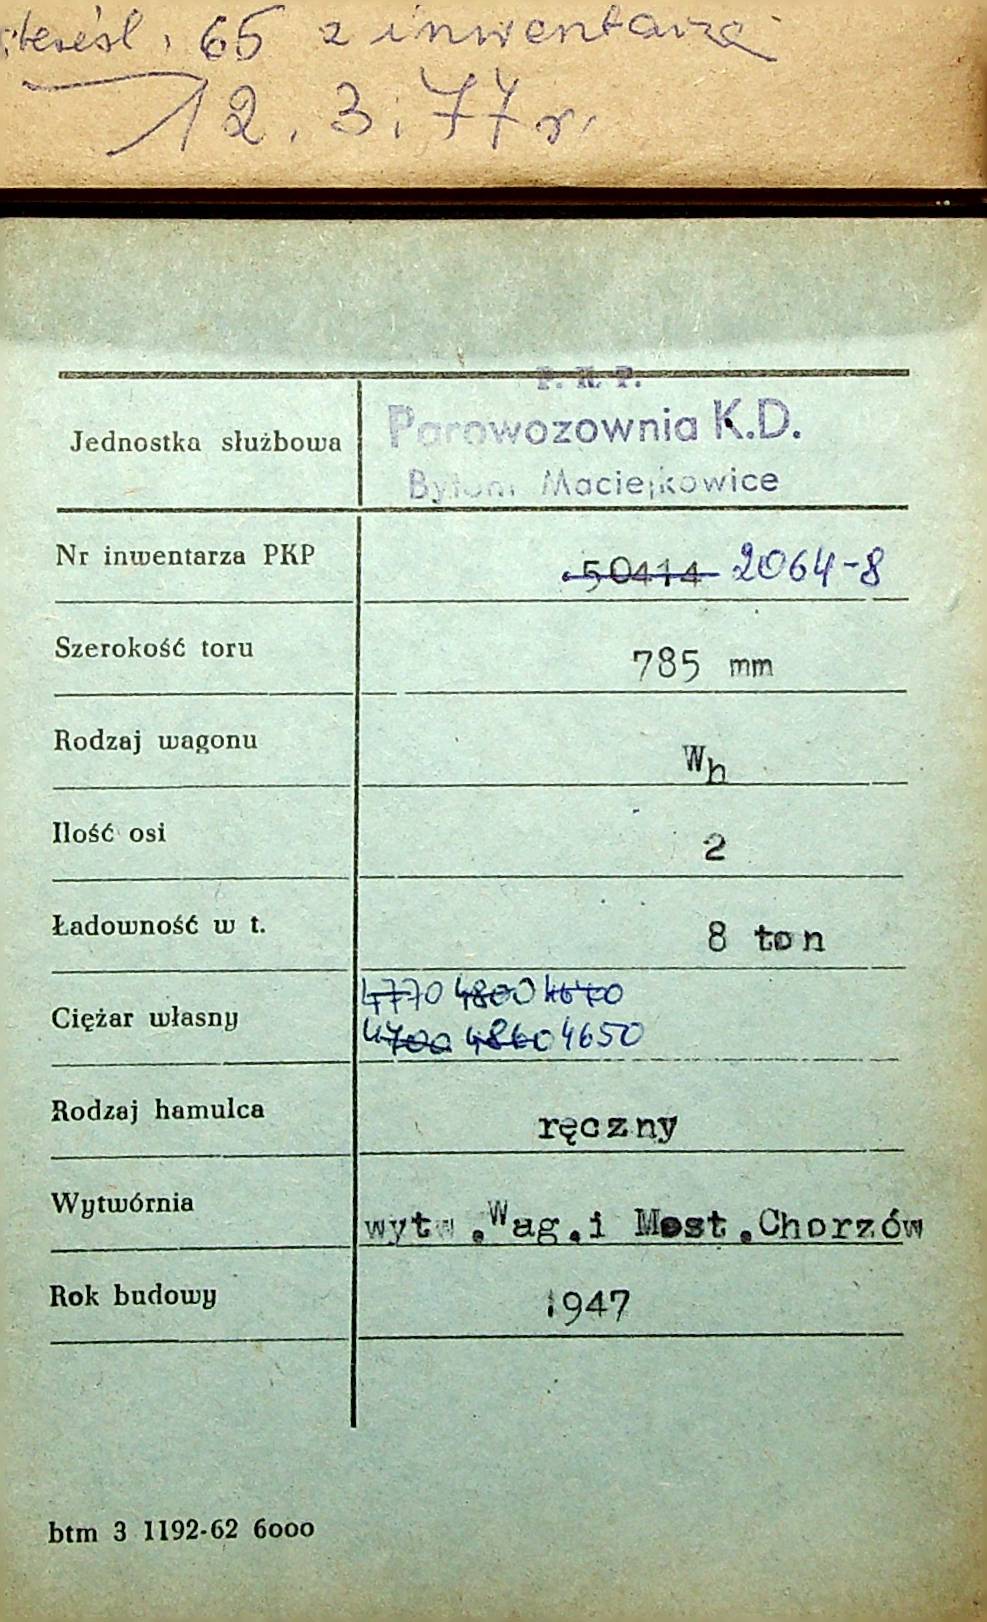 65 z inwentarza
12.3.77 r.
P. K. P.
Jednostka służbowa Parowozownia K.D.
Bytom Maciejkowice
Nr inwentarza PKP 50414 2064-8
Szerokość toru 785 mm
Rodzaj wagonu Wh
Ilość osi 2
Ładowność w t. 8 ton
4770 4800 4670
Ciężar własny 4700 4860 4650
Rodzaj hamulca ręczny
Wytwórnia wytw.Wag.i Most.Chorzów
Rok budowy 1947
btm 3 1192-62 6ooo